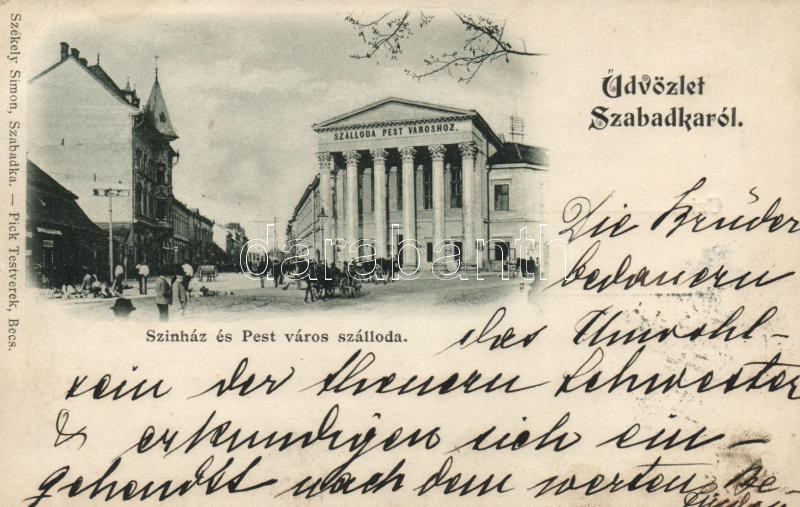 Székely Simon, Szabadka. — Pick Testverek, Becs.
SZÁLLODA PEST VÁROSHOZ.
Üdvözlet
Szabadkaról.
darabanth
Szinház és Pest város szálloda.
Die Brüder
bedauern
das Unwohl-
sein der theuern Schwester
& erkundigen sich ein-
gehendst nach dem werten Be-
finden